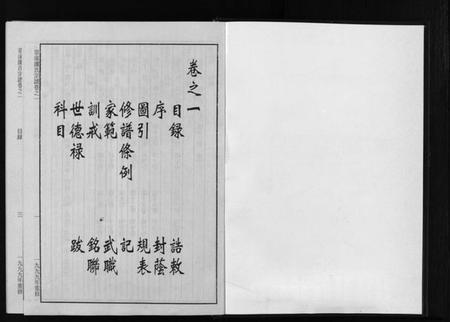 卷之一
目錄
序
圖引
修譜條例
家範
訓戒
世德禄
科目
誥敕
封蔭
規表
記
武職
銘聯
跋
目錄
三
一九九九年重修